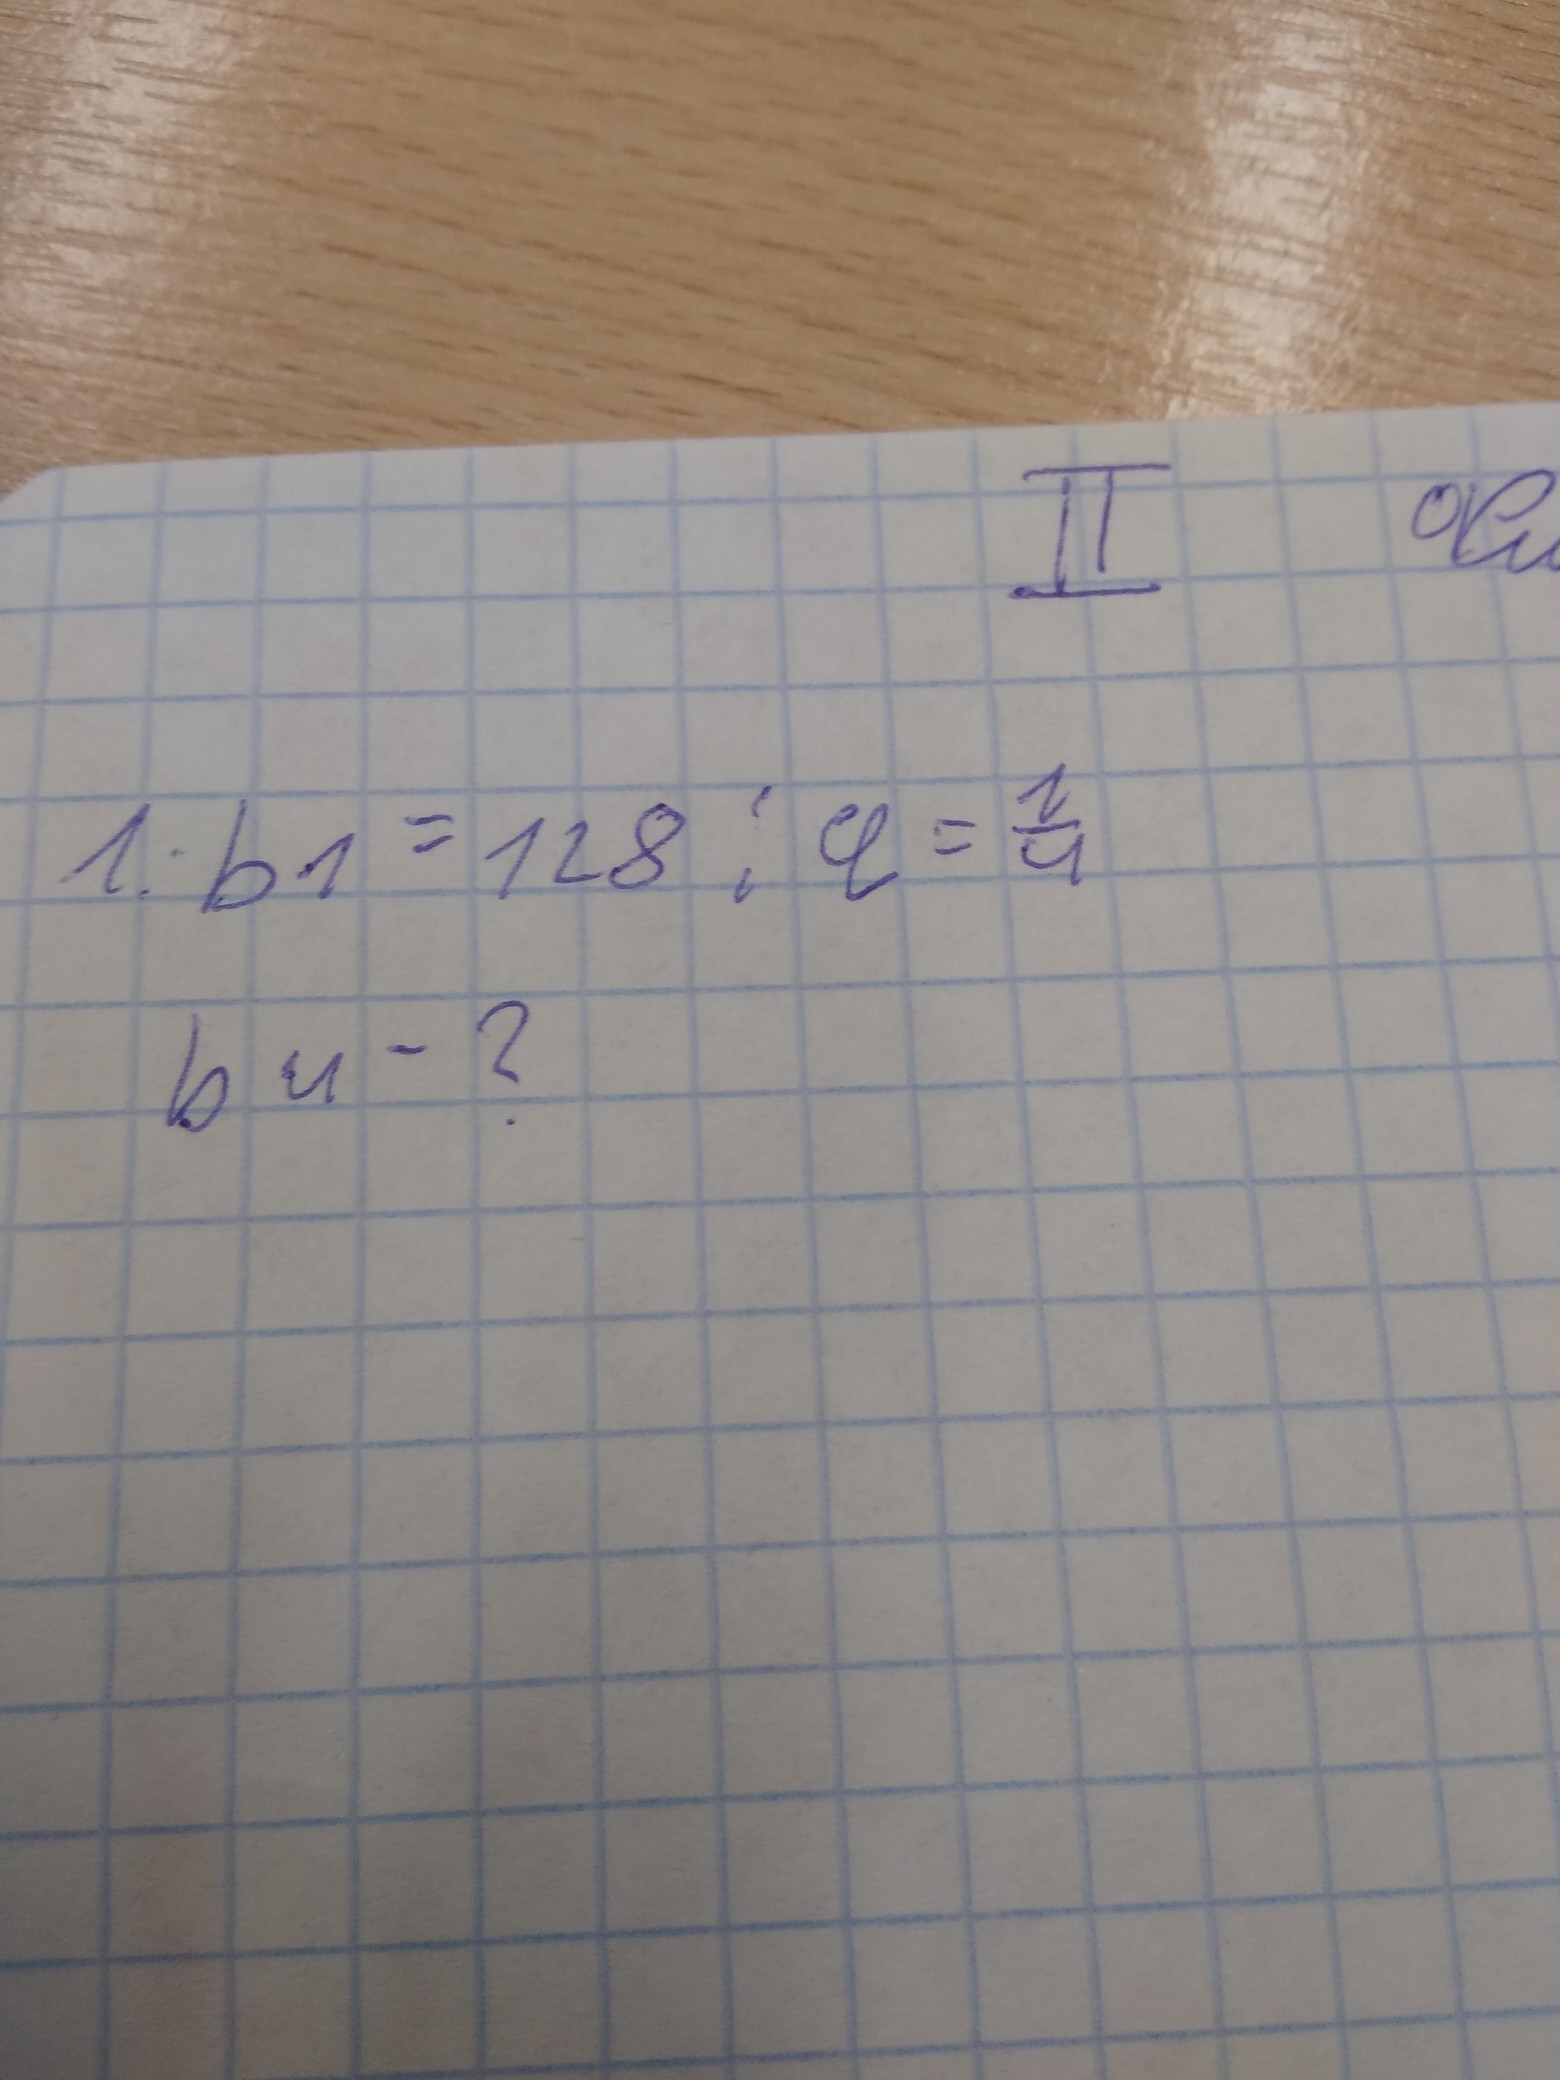 II
1. b1 = 128 ; q = 1/4
b4 - ?